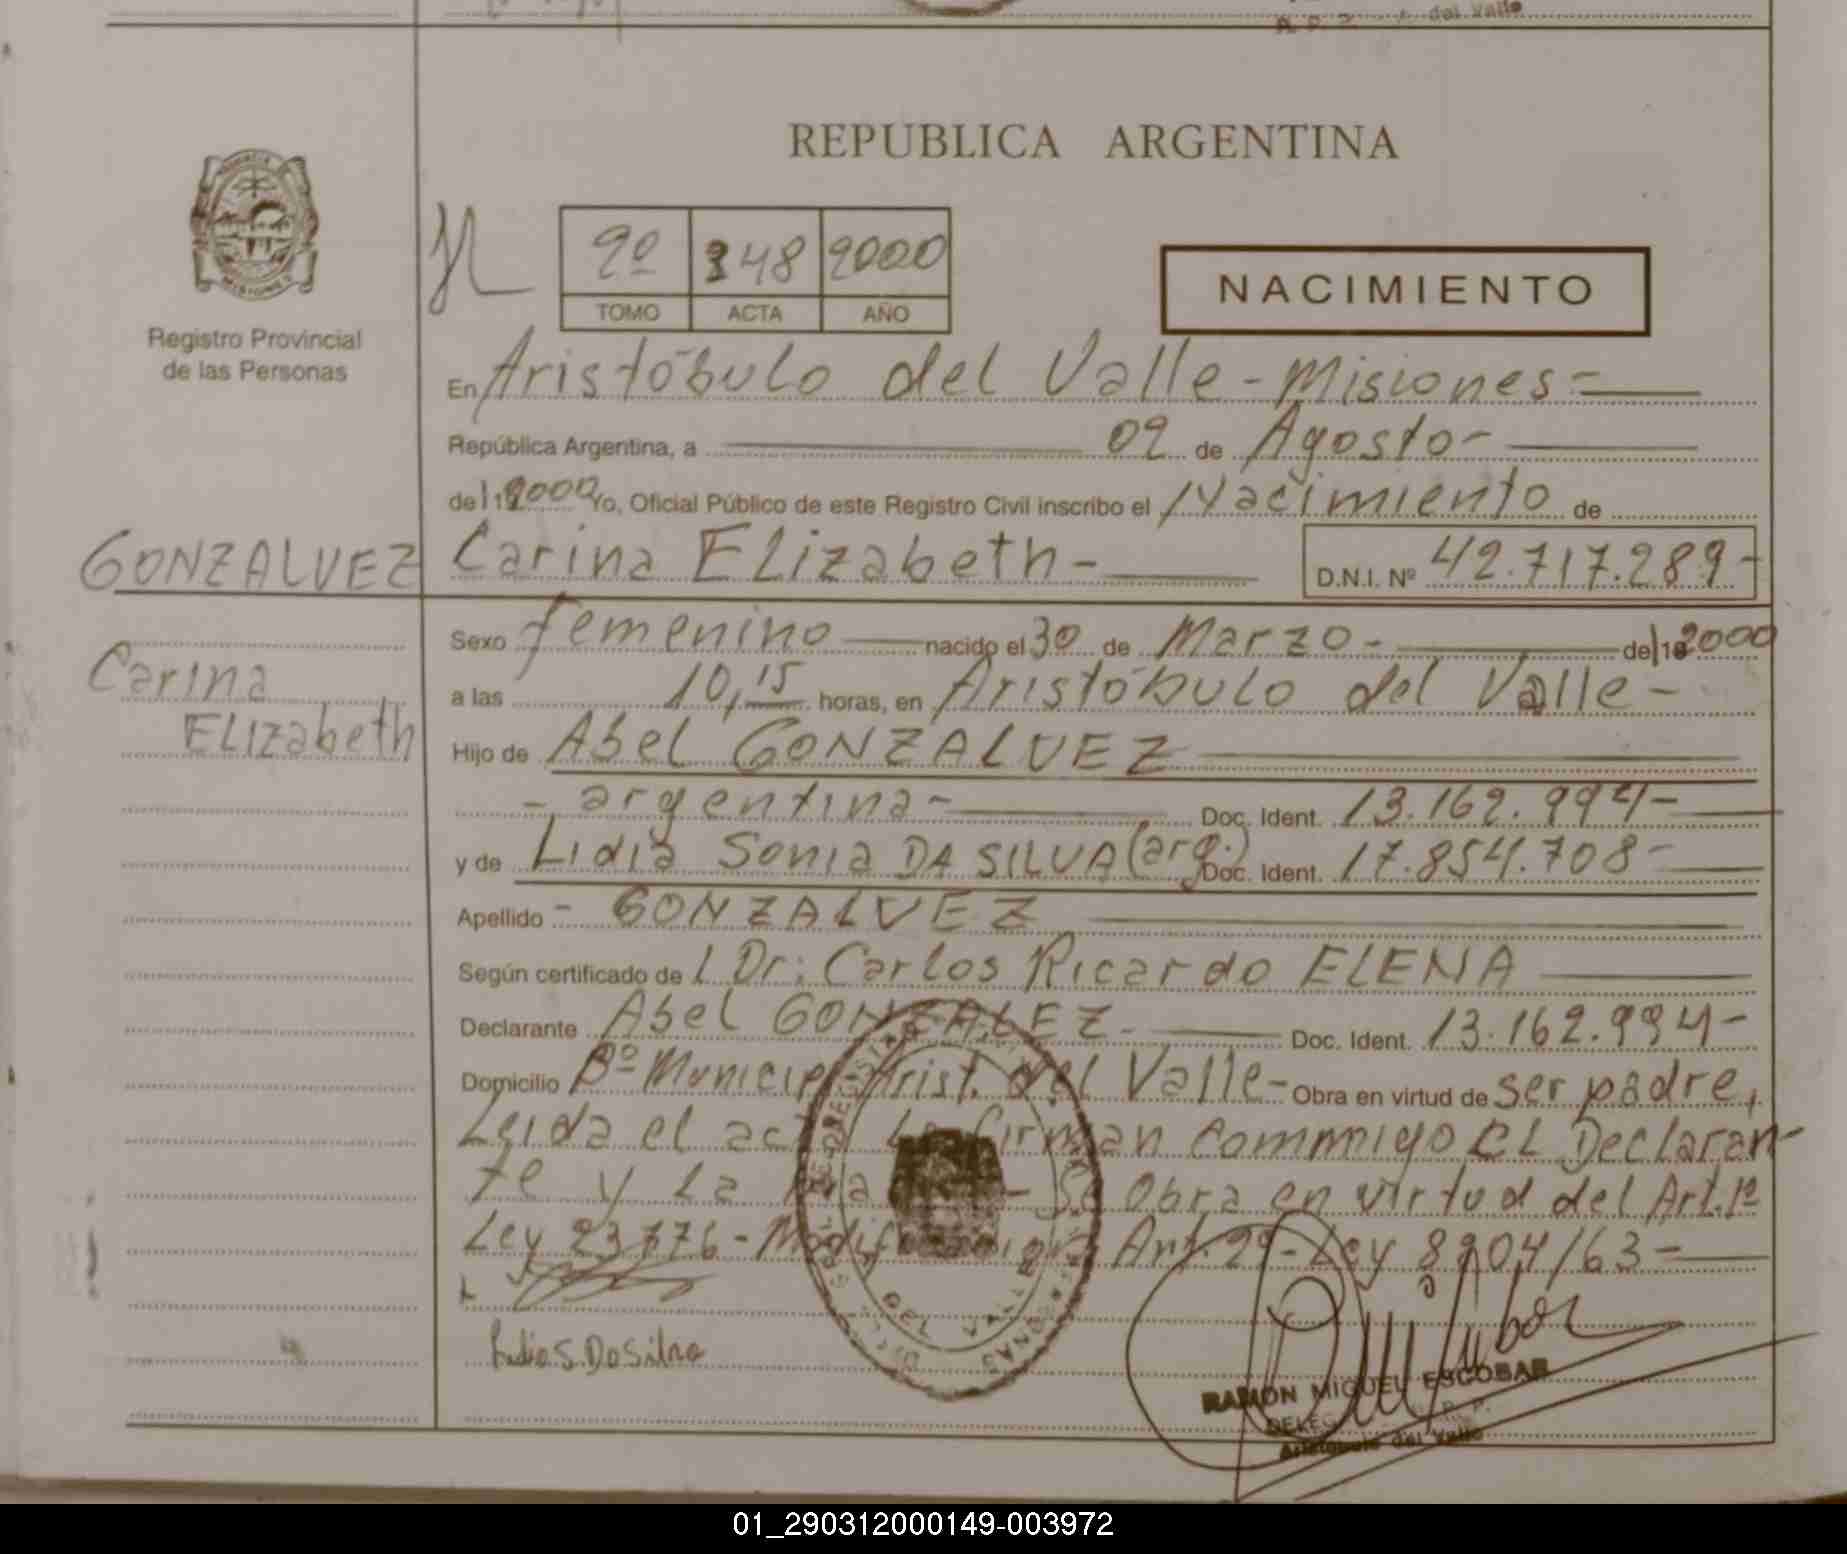 del Valle
REPUBLICA ARGENTINA
2º 348 2000
TOMO ACTA AÑO
NACIMIENTO
Registro Provincial
de las Personas
En Aristóbulo del Valle - Misiones =
República Argentina, a 02 de Agosto -
del 2000 Yo, Oficial Público de este Registro Civil inscribo el Nacimiento de
GONZALVEZ Carina ELizabeth - D.N.I. Nº 42.717.289-
Sexo femenino nacido el 30 de Marzo - del 2000
Carina
a las 10,15 horas, en Aristóbulo del Valle -
ELizabeth
Hijo de Abel GONZALVEZ
- argentina - Doc. Ident. 13.162.994-
y de Lidia Sonia DA SILVA (arg.) Doc. Ident. 17.854.708-
Apellido - GONZALVEZ
Según certificado de L Dr: Carlos Ricardo ELENA
Declarante Abel GONZALEZ - Doc. Ident. 13.162.994-
Domicilio Bº Municip. Arist. del Valle - Obra en virtud de ser padre,
Leida el acta La firman commigo EL Declaran-
te y La - Se Obra en virtud del Art. 1º
Ley 23776 - Art. 29 - Ley 8204/63 -
S. Da Silva
RAMON MIGUEL ESCOBAR
Aristobulo del Valle
01_290312000149-003972